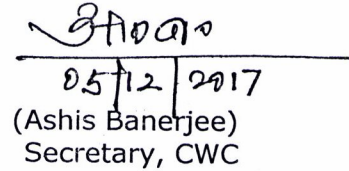 05/12/2017
(Ashis Banerjee)
Secretary, CWC